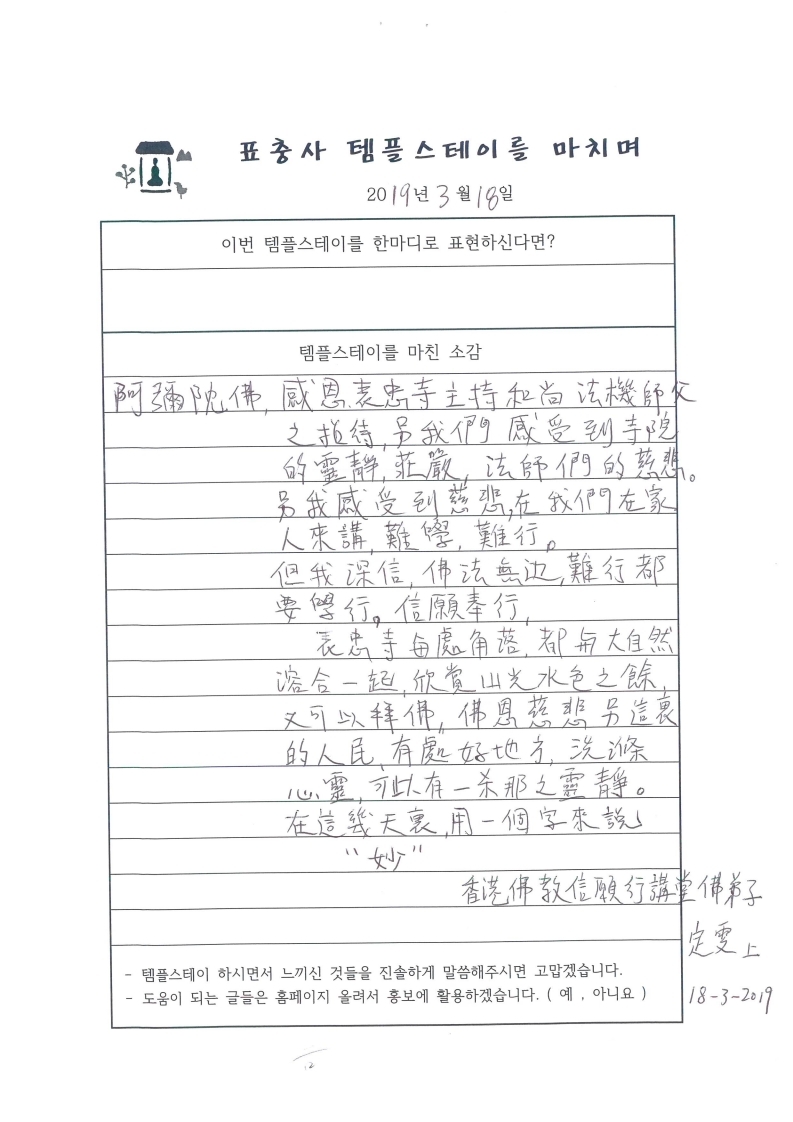 표충사 템플스테이를 마치며
2019년 3월 18일
이번 템플스테이를 한마디로 표현하신다면?
템플스테이를 마친 소감
阿彌陀佛, 感恩表忠寺主持和尚法機師父
之招待, 另我們感受到寺院
的靈靜, 莊嚴, 法師們的慈悲。
另我感受到慈悲, 在我們在家
人來講, 難學, 難行。
但我深信, 佛法無边, 難行都
要學行。信願奉行,
表忠寺每處角落, 都與大自然
溶合一起, 欣賞山光水色之餘,
又可以拜佛, 佛恩慈悲另這裏
的人民, 有處好地方, 洗滌
心靈, 可以有一杀那之靈靜。
在這幾天裏, 用一個字來說
"妙"
香港佛教信願行講堂佛弟子
定雯上
- 템플스테이 하시면서 느끼신 것들을 진솔하게 말씀해주시면 고맙겠습니다.
- 도움이 되는 글들은 홈페이지 올려서 홍보에 활용하겠습니다. ( 예 , 아니요 )
18-3-2019
12